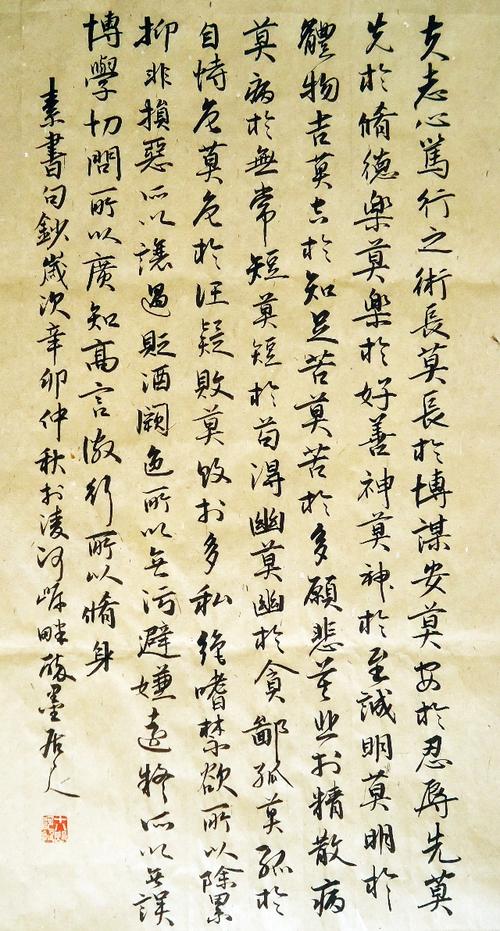 夫志心篤行之術長莫長於博謀安莫安於忍辱先莫
先於脩德樂莫樂於好善神莫神於至誠明莫明於
體物吉莫吉於知足苦莫苦於多願悲莫悲於精散病
莫病於無常短莫短於苟得幽莫幽於貪鄙孤莫孤於
自恃危莫危於任疑敗莫敗於多私絕嗜禁欲所以除累
抑非損惡所以讓過貶酒闕色所以無污避嫌遠疑所以無誤
博學切問所以廣知高言微行所以脩身
素書句鈔歲次辛卯仲秋於凌河岸畔醉墨居人